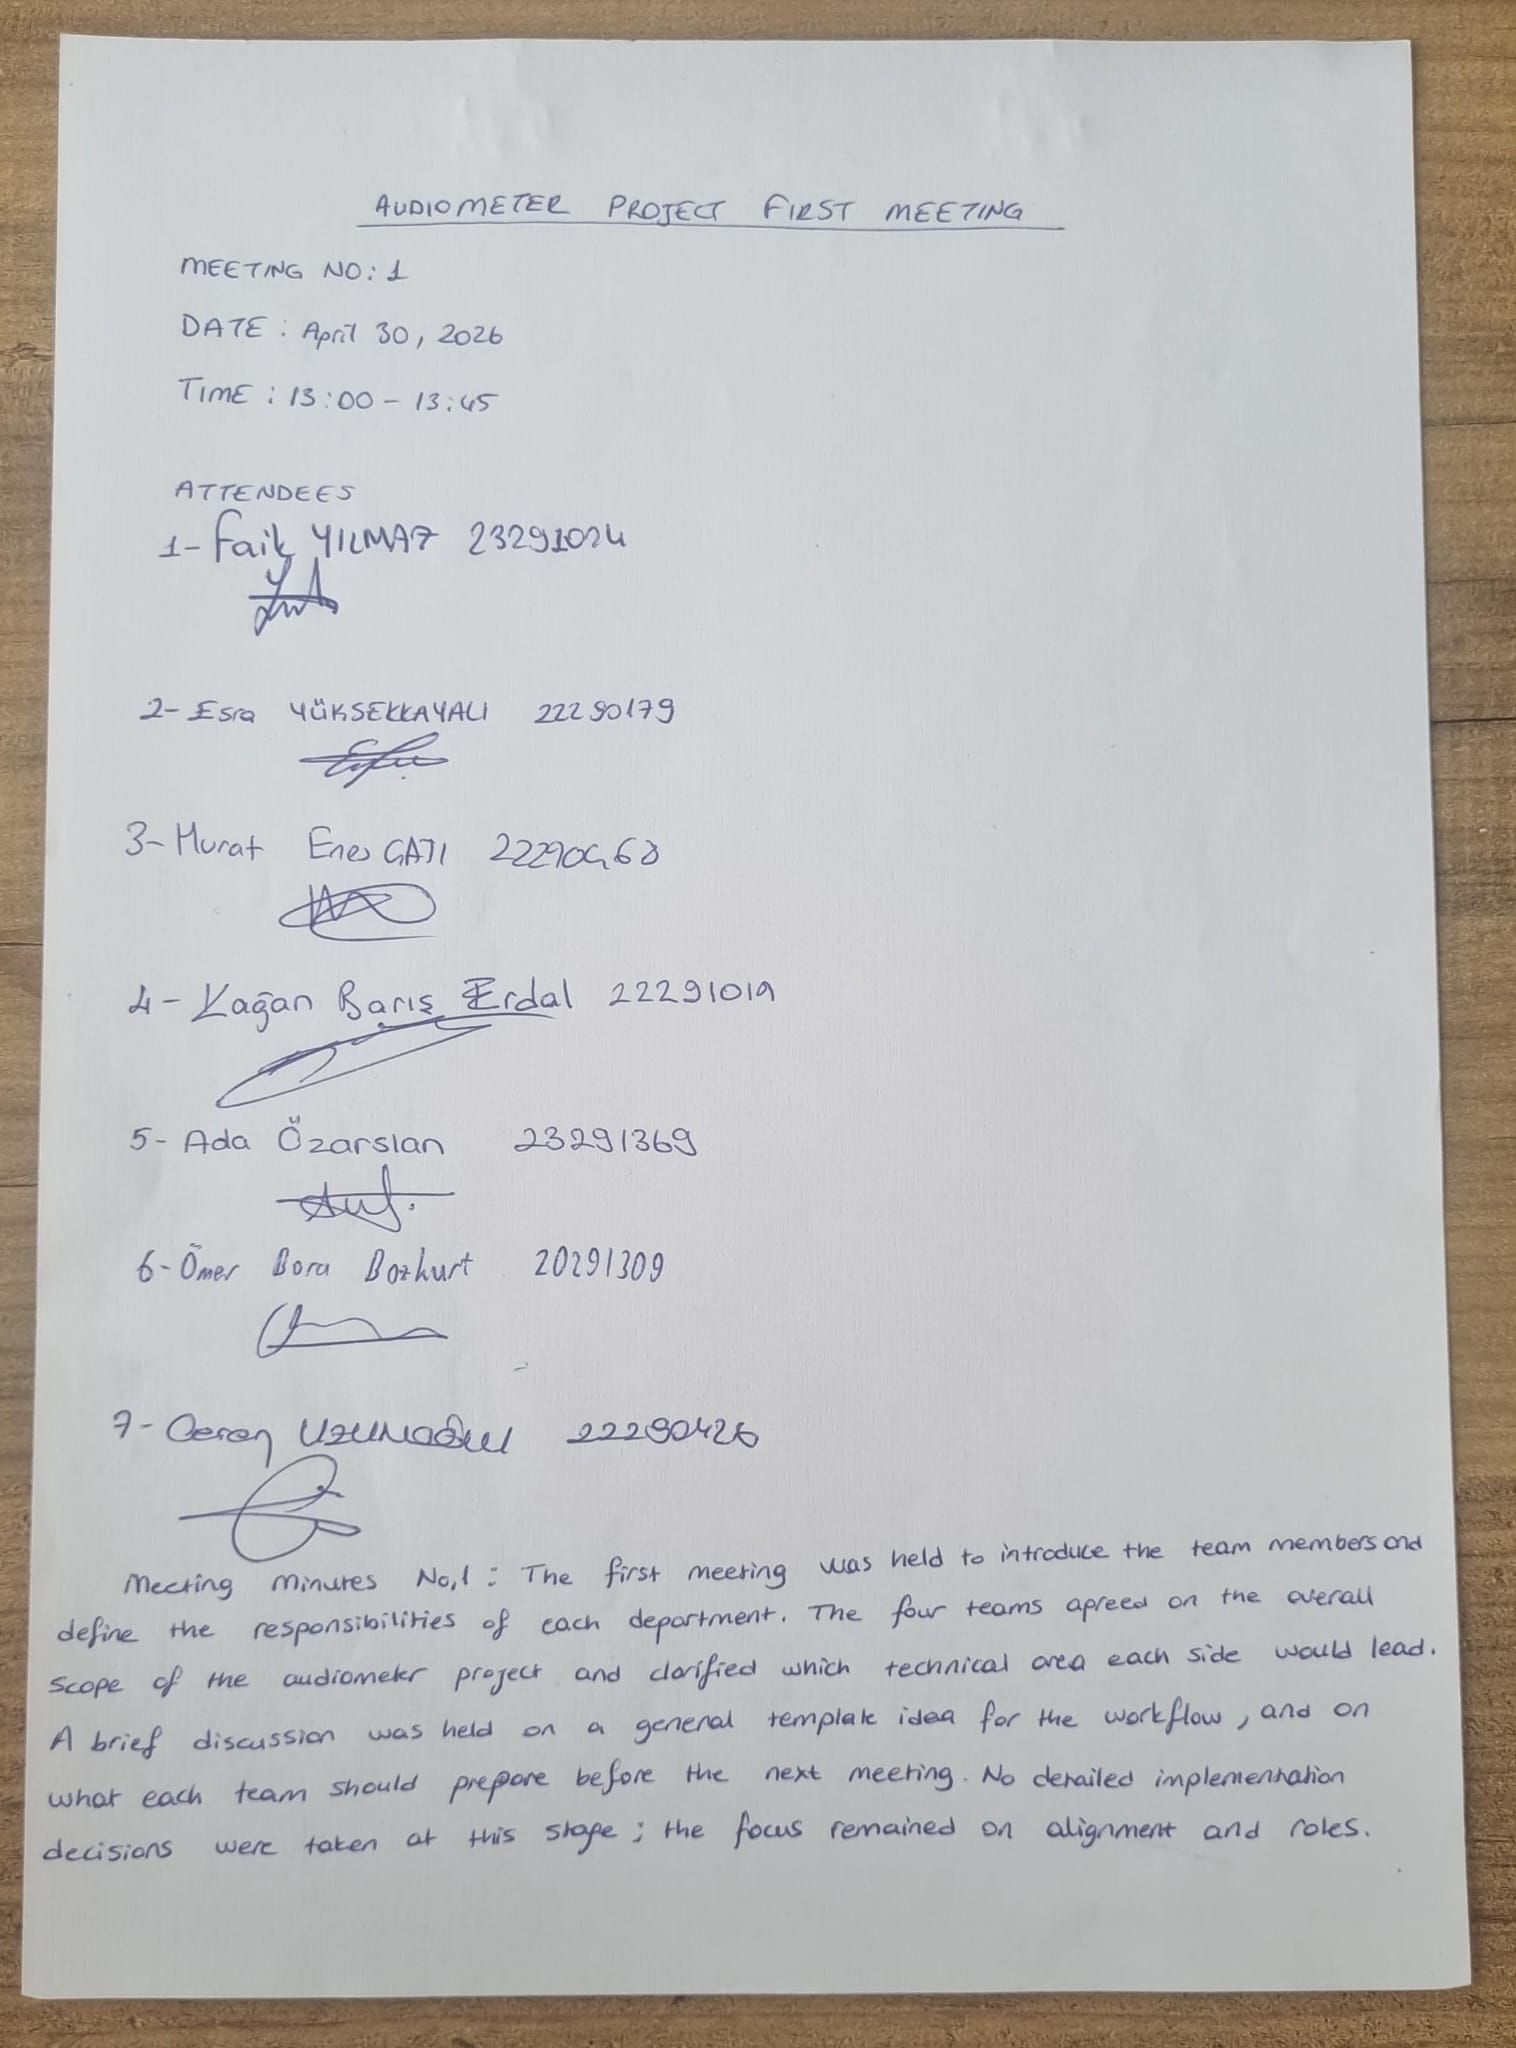 AUDIOMETER PROJECT FIRST MEETING
MEETING NO: 1
DATE : April 30, 2026
TIME : 13:00 - 13:45
ATTENDEES
1- Faik YILMAZ 23291024
2- Esra YÜKSEKKAYALI 22290179
3- Murat Enes
4- Kağan Barış Erdal 22291019
5- Ada Özarslan 23291369
6- Ömer Bora Bozkurt 20291309
7- Ceren Uzunoğlu 22290426
Meeting Minutes No,1 : The first meeting was held to introduce the team members and
define the responsibilities of each department. The four teams agreed on the overall
scope of the audiometer project and clarified which technical area each side would lead.
A brief discussion was held on a general template idea for the workflow, and on
what each team should prepare before the next meeting. No detailed implementation
decisions were taken at this stage; the focus remained on alignment and roles.